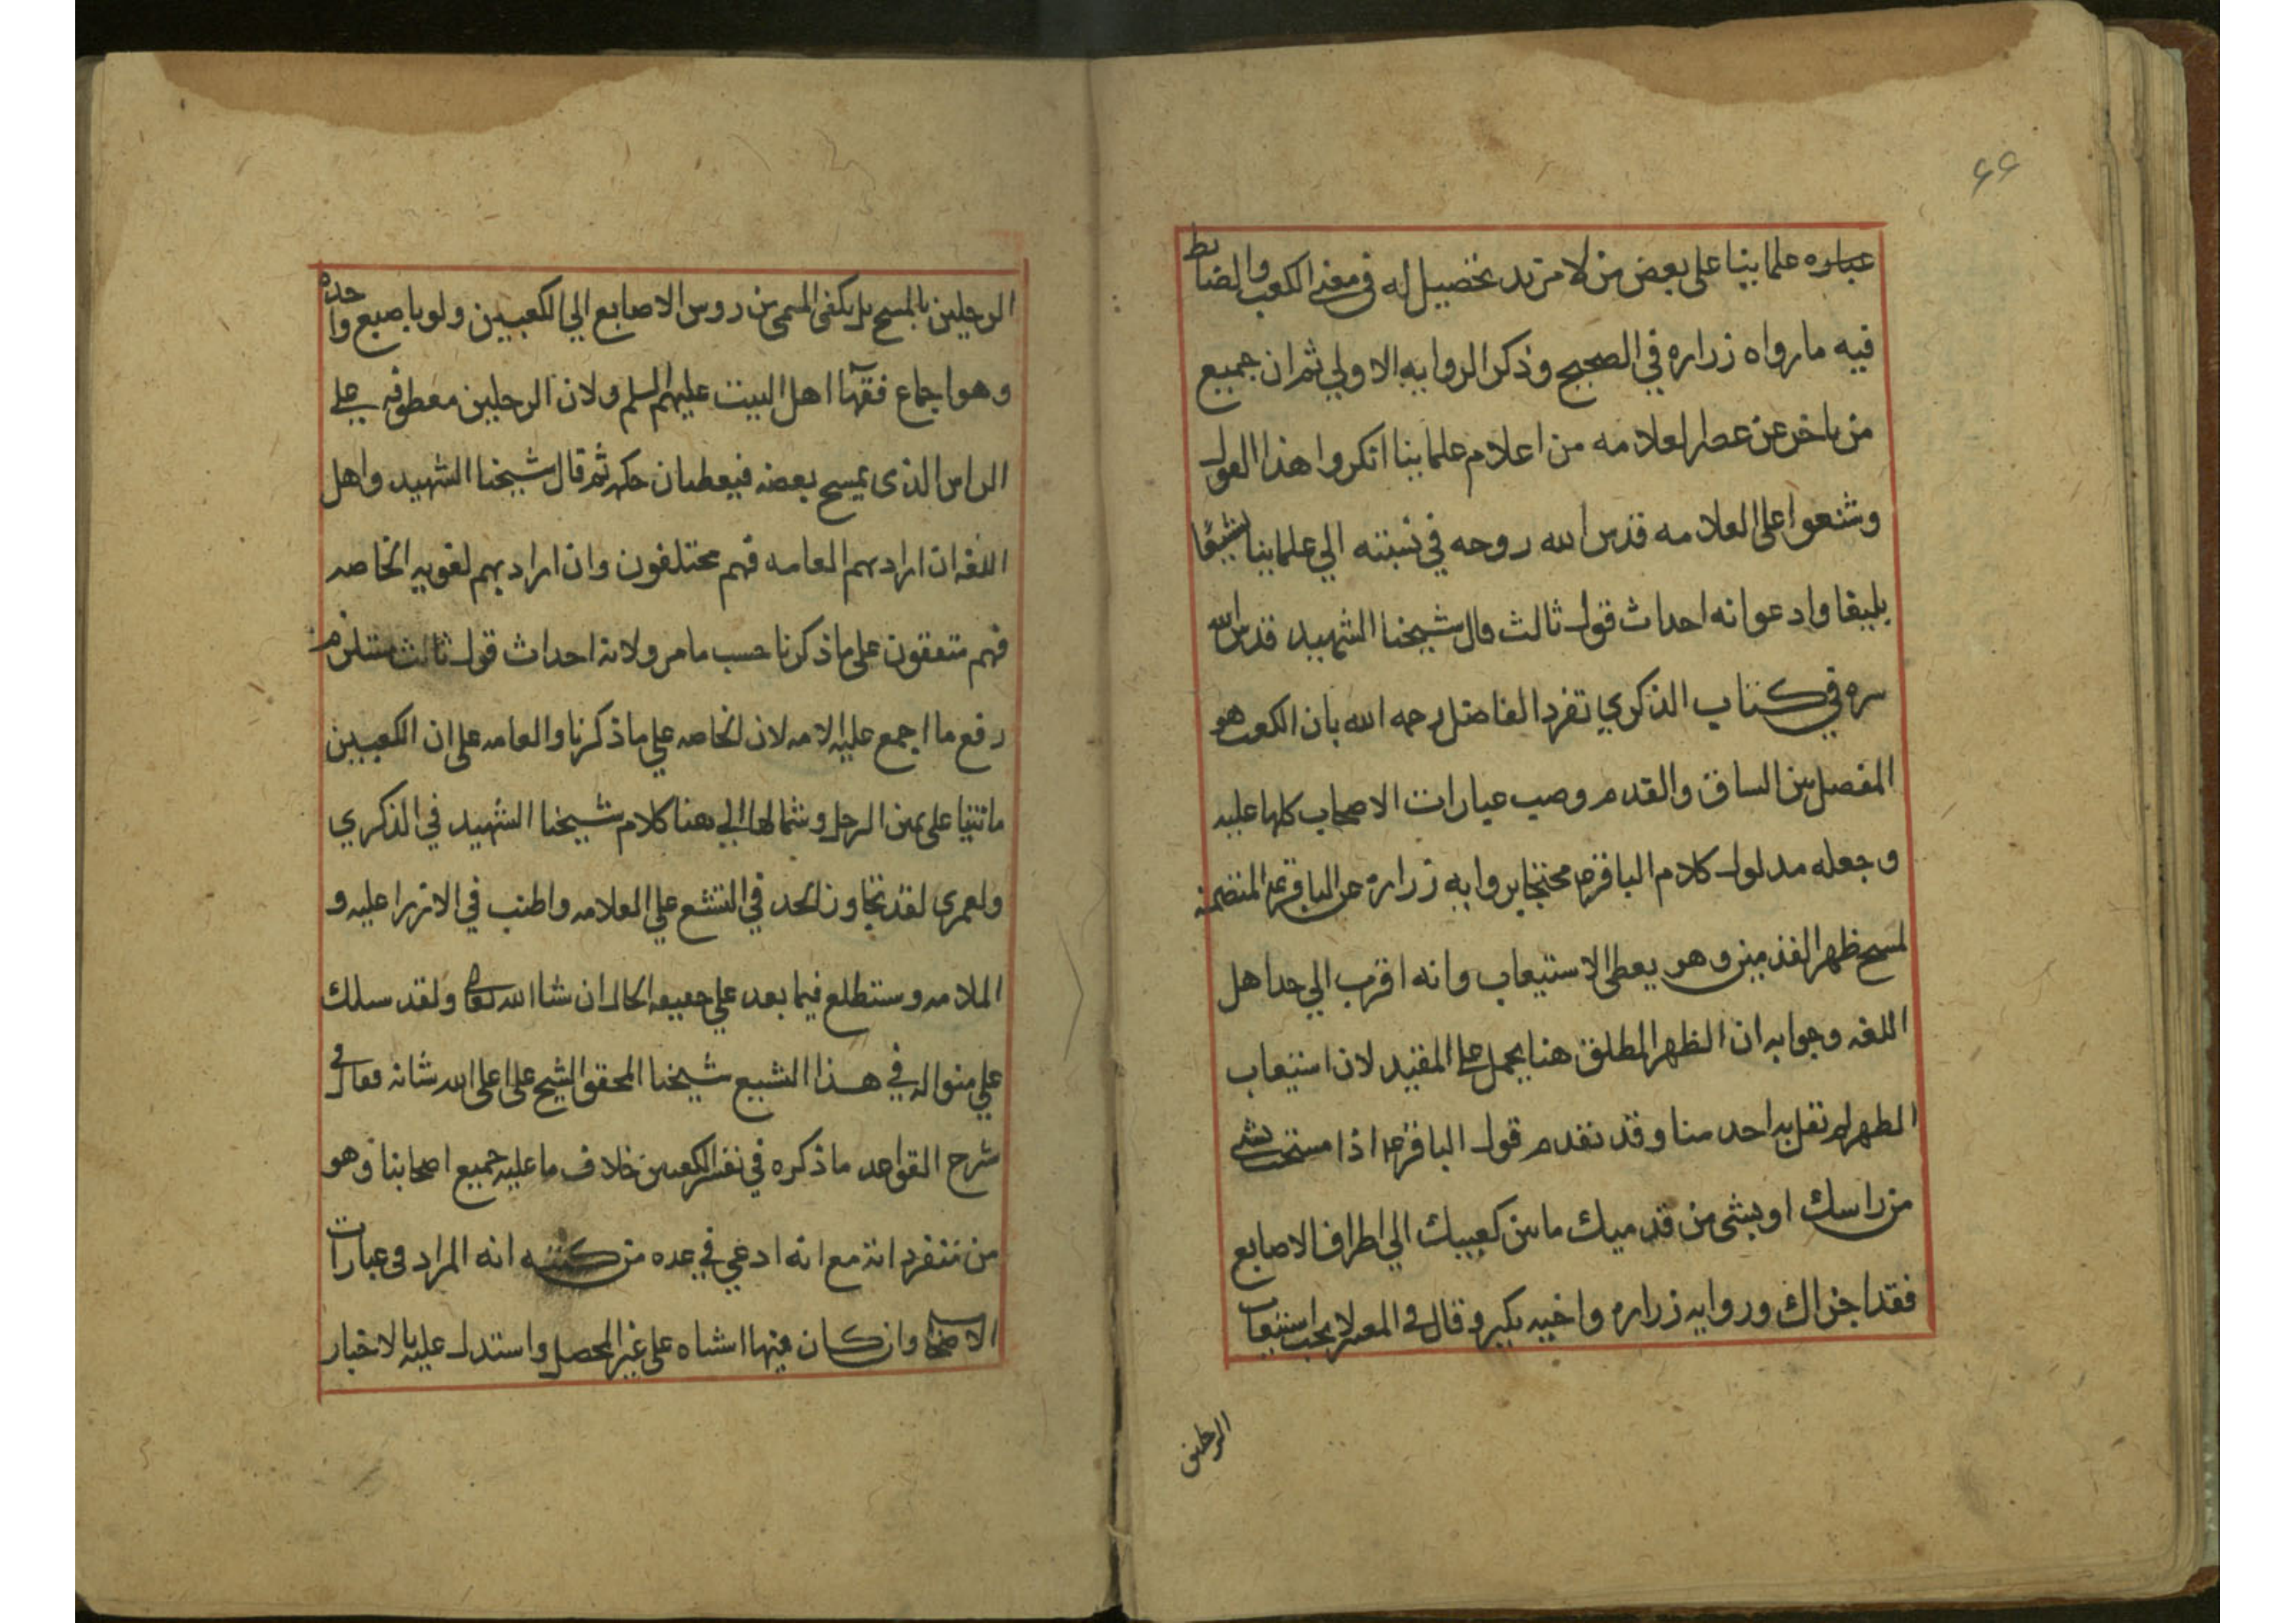 ٦٦
عباره علماينا على بعض من لا مزيد تحصيل له في معنى الكعب والضابط
فيه ما رواه زراره في الصحيح وذكر الروايه الاولي ثم ان جميع
من تاخر عن عصر العلامه من اعلام علماينا انكروا هذا القول
وشنعوا على العلامه قدس الله روحه في نسبته الي علماينا تشنيعا
بليغا وادعوا انه احداث قول ثالث قال شيخنا الشهيد قدس الله
سره في كتاب الذكري تفرد الفاضل رحمه الله بان الكعب هو
المفصل بين الساق والقدم وصب عبارات الاصحاب كلها عليه
وجعله مدلول كلام الباقر ع محتجا بروايه زراره عن الباقر ع المتضمنه
لمسح ظهر القدمين وهو يعطى الاستيعاب وانه اقرب الي حد اهل
اللغه وجوابه ان الظهر المطلق هنا يحمل على المقيد لان استيعاب
الظهر لم تقل به احد منا وقد تقدم قول الباقر ع اذا مسحت بشي
من راسك او بشي من قدميك ما بين كعبيك الي اطراف الاصابع
فقد اجزاك وروايه زراره واخيه بكير وقال في المعتبر لا يجب استيعاب
الرجلين
الرجلين بالمسح بل يكفى المسمى من روس الاصابع الي الكعبين ولو باصبع واحده
وهو اجماع فقهآ اهل البيت عليهم السلم ولان الرجلين معطوفه على
الراس الذي يمسح بعضه فيعطيان حكمه ثم قال شيخنا الشهيد واهل
اللغه ان اراد بهم العامه فهم مختلفون وان اراد بهم لغويه الخاصه
فهم متفقون على ما ذكرنا حسب ما مر ولانه احداث قول ثالث مستلزم
رفع ما اجمع عليه الامه لان الخاصه علي ما ذكرنا والعامه على ان الكعبين
ما نتيا على يمين الرجل وشمالها الي هنا كلام شيخنا الشهيد في الذكري
ولعمري لقد تجاوز الحد في التشنع علي العلامه واطنب في الازرا عليه و
الملامه وستطلع فيما بعد علي حقيقه الحال ان شا الله تعالى ولقد سلك
علي منواله في هذا الشنيع شيخنا المحقق الشيخ على اعلى الله شانه فقال في
شرح القواعد ما ذكره في تفسير الكعبين خلاف ما عليه جميع اصحابنا وهو
من متفرداته مع انه ادعي في عده من كتبه انه المراد في عبارات
الاصحاب وان كان فيها اشتباه على غير المحصل واستدل عليه بالاخبار